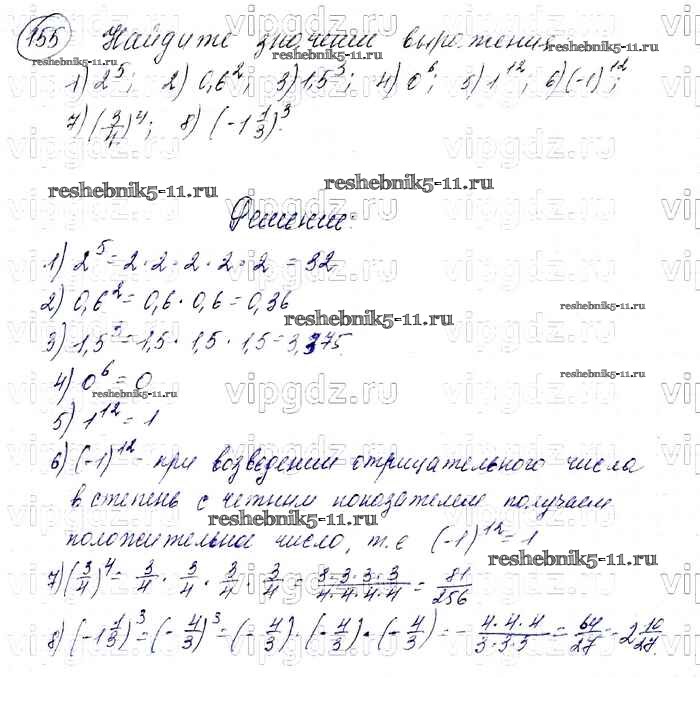 155 Найдите значении выражения
1) 2^5; 2) 0,6^2; 3) 1,5^3; 4) 0^6; 5) 1^12; 6) (-1)^12;
7) (3/4)^4; 8) (-1 1/3)^3.
Решение:
1) 2^5 = 2 · 2 · 2 · 2 · 2 = 32
2) 0,6^2 = 0,6 · 0,6 = 0,36
3) 1,5^3 = 1,5 · 1,5 · 1,5 = 3,375
4) 0^6 = 0
5) 1^12 = 1
6) (-1)^12 - при возведении отрицательного числа
в степень с четним показателем получаем
положительное число, т.е (-1)^12 = 1
7) (3/4)^4 = 3/4 · 3/4 · 3/4 · 3/4 = 3·3·3·3/4·4·4·4 = 81/256
8) (-1 1/3)^3 = (-4/3)^3 = (-4/3) · (-4/3) · (-4/3) = - 4·4·4/3·3·3 = - 64/27 = -2 10/27.
vipgdz.ru
reshebnik5-11.ru